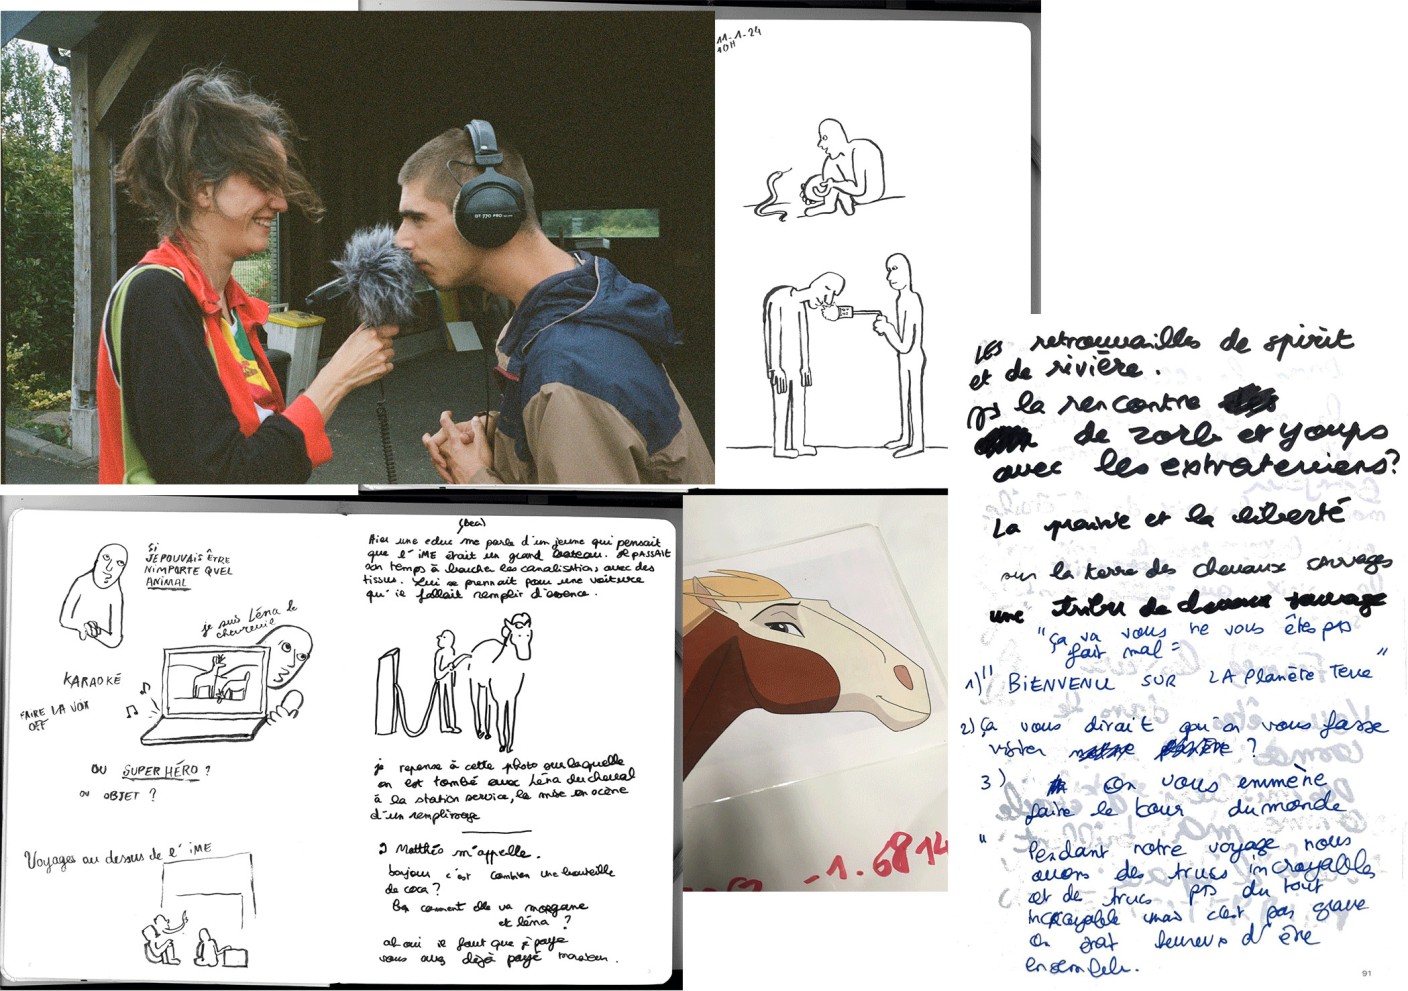 DT 770 PRO
11-1-24
10H
LES retrouvailles de spirit
et de rivière.
la rencontre
de zorb et youps
avec les extrateriens?
La prairie et la liberté
sur la terre des chevaux sauvages
une tribu de chevaux sauvage
"ça va vous ne vous êtes pas
fait mal"
1) "BiENVENU SUR LA Planète Terre"
2) ça vous dirait qu'on vous fasse
visiter ?
3) on vous emmène
faire le tour du monde
" Pendant notre voyage nous
avons des trucs incroyables
et de trucs pas du tout
incroyable mais c'est pas grave
on était heureux d'être
ensemble.
91
Si
JE POUVAIS ÊTRE
N'IMPORTE QUEL
ANIMAL
je suis Léna le
chevreuil
KARAOKÉ
FAIRE LA VOIX
OFF
OU SUPER HÉRO ?
OU OBJET ?
Voyages au dessus de l'iME
(Bea)
Hier une educ me parle d'un jeune qui pensait
que l'iME était un grand bateau. il PASSAIT
son temps à boucher les canalisations avec des
tissus. Lui se prennait pour une voiture
qu'il fallait remplir d'essence.
je repense à cette photo sur laquelle
on est tombé avec Léna du cheval
à la station service, la mise en scène
d'un remplissage
Matthéo m'appelle.
bonjour c'est combien une bouteille
de coca ?
Bon comment elle va morgane
et léna ?
ah oui il faut que je paye
vous avez déjà payé monsieur.
-1.6814